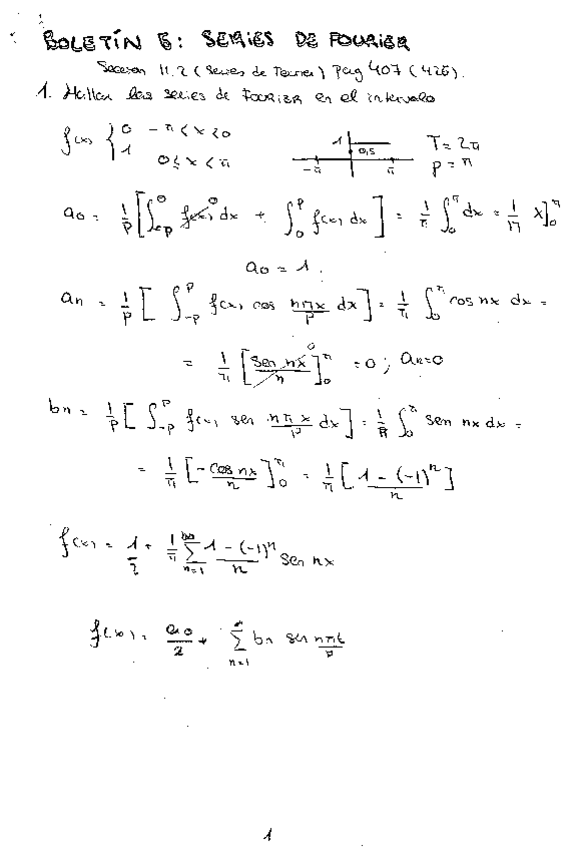 BOLETÍN 6: SERIES DE FOURIER
Sección 11.2 (Series de Fourier) pag 407 (426).
1. Hallar las series de FOURIER en el intervalo
f(x) { 0 -π < x < 0
1 0 ≤ x < π
1 0,5 -π π
T = 2π
p = π
a0 = 1/p [ ∫_{-p}^{0} f(x) dx + ∫_{0}^{p} f(x) dx ] = 1/π ∫_{0}^{π} dx = 1/π x]_{0}^{π}
a0 = 1.
an = 1/p [ ∫_{-p}^{p} f(x) cos nπx/p dx ] = 1/π ∫_{0}^{π} cos nx dx =
= 1/π [ sen nx/n ]_{0}^{π} = 0 ; an = 0
bn = 1/p [ ∫_{-p}^{p} f(x) sen nπx/p dx ] = 1/π ∫_{0}^{π} sen nx dx =
= 1/π [ -cos nx/n ]_{0}^{π} = 1/π [ 1 - (-1)^n / n ]
f(x) = 1/2 + 1/π ∑_{n=1}^{∞} 1 - (-1)^n / n sen nx
f(x) = a0/2 + ∑_{n=1}^{∞} bn sen nπt/p
1